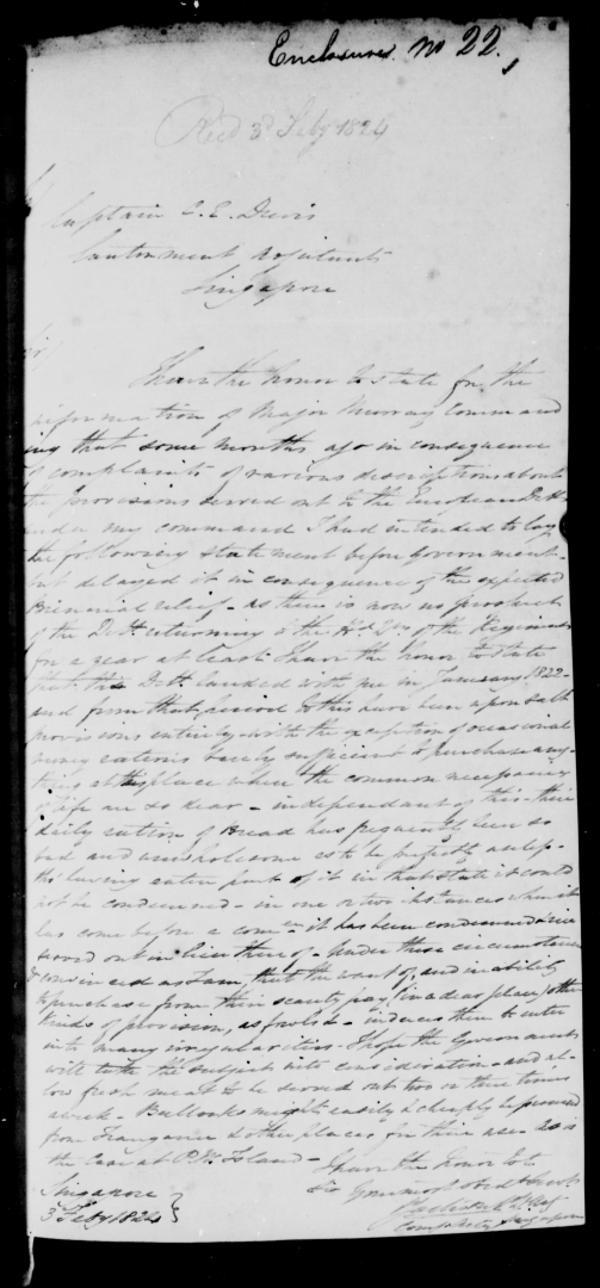 Enclosure No 22.
Recd 3d Feby 1824
Captain C. E. Davis
Cantonment Adjutant
Singapore
Sir,
I have the honor to state for the
information of Major Murray Command
ing that some months ago in consequence
of complaints of various descriptions about
the provisions served out to the European Dett
under my command I had intended to lay
the following statement before Government -
but delayed it in consequence of the expected
Biennial relief - as there is now no prospect
of the Dett returning to the Hd Qrs of the Regiment
for a year at least I have the honor to state
that this Dett landed with me in January 1822 -
and from that period to this have been upon salt
provisions entirely - with the exception of occasional
money rations barely sufficient to purchase any-
thing at this place where the common necessary
of life are so dear - independant of this - their
daily ration of Bread has frequently been so
bad and unwholesome as to be perfectly
having eaten part of it in that state it could
not be condemned - in one or two instances when it
has come before a it has been condemned &
served out in lieu thereof - Under these circumstances
& convinced as I am, that the want of, and inability
to purchase from their scanty pay, (in a dear place) other
kinds of provision, as fowls &c - induces them to enter
into many irregularities - I hope the Government
will take the subject into consideration - and al-
low fresh meat to be served out two or three times
a week - Bullocks might easily & cheaply be procured
from & other places for their use - as is
the case at P. W. Island -
I have the honor to be
Sir Your most Obedt Servt
Singapore
3 Feby 1824